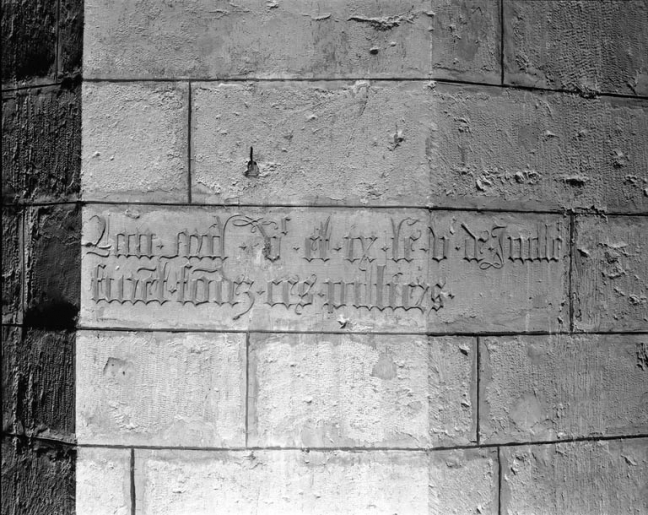 Lan · mil · vᶜ · et · ix · le · vᵉ · de Juille
furēt · fōdez · ces · pilliers ·